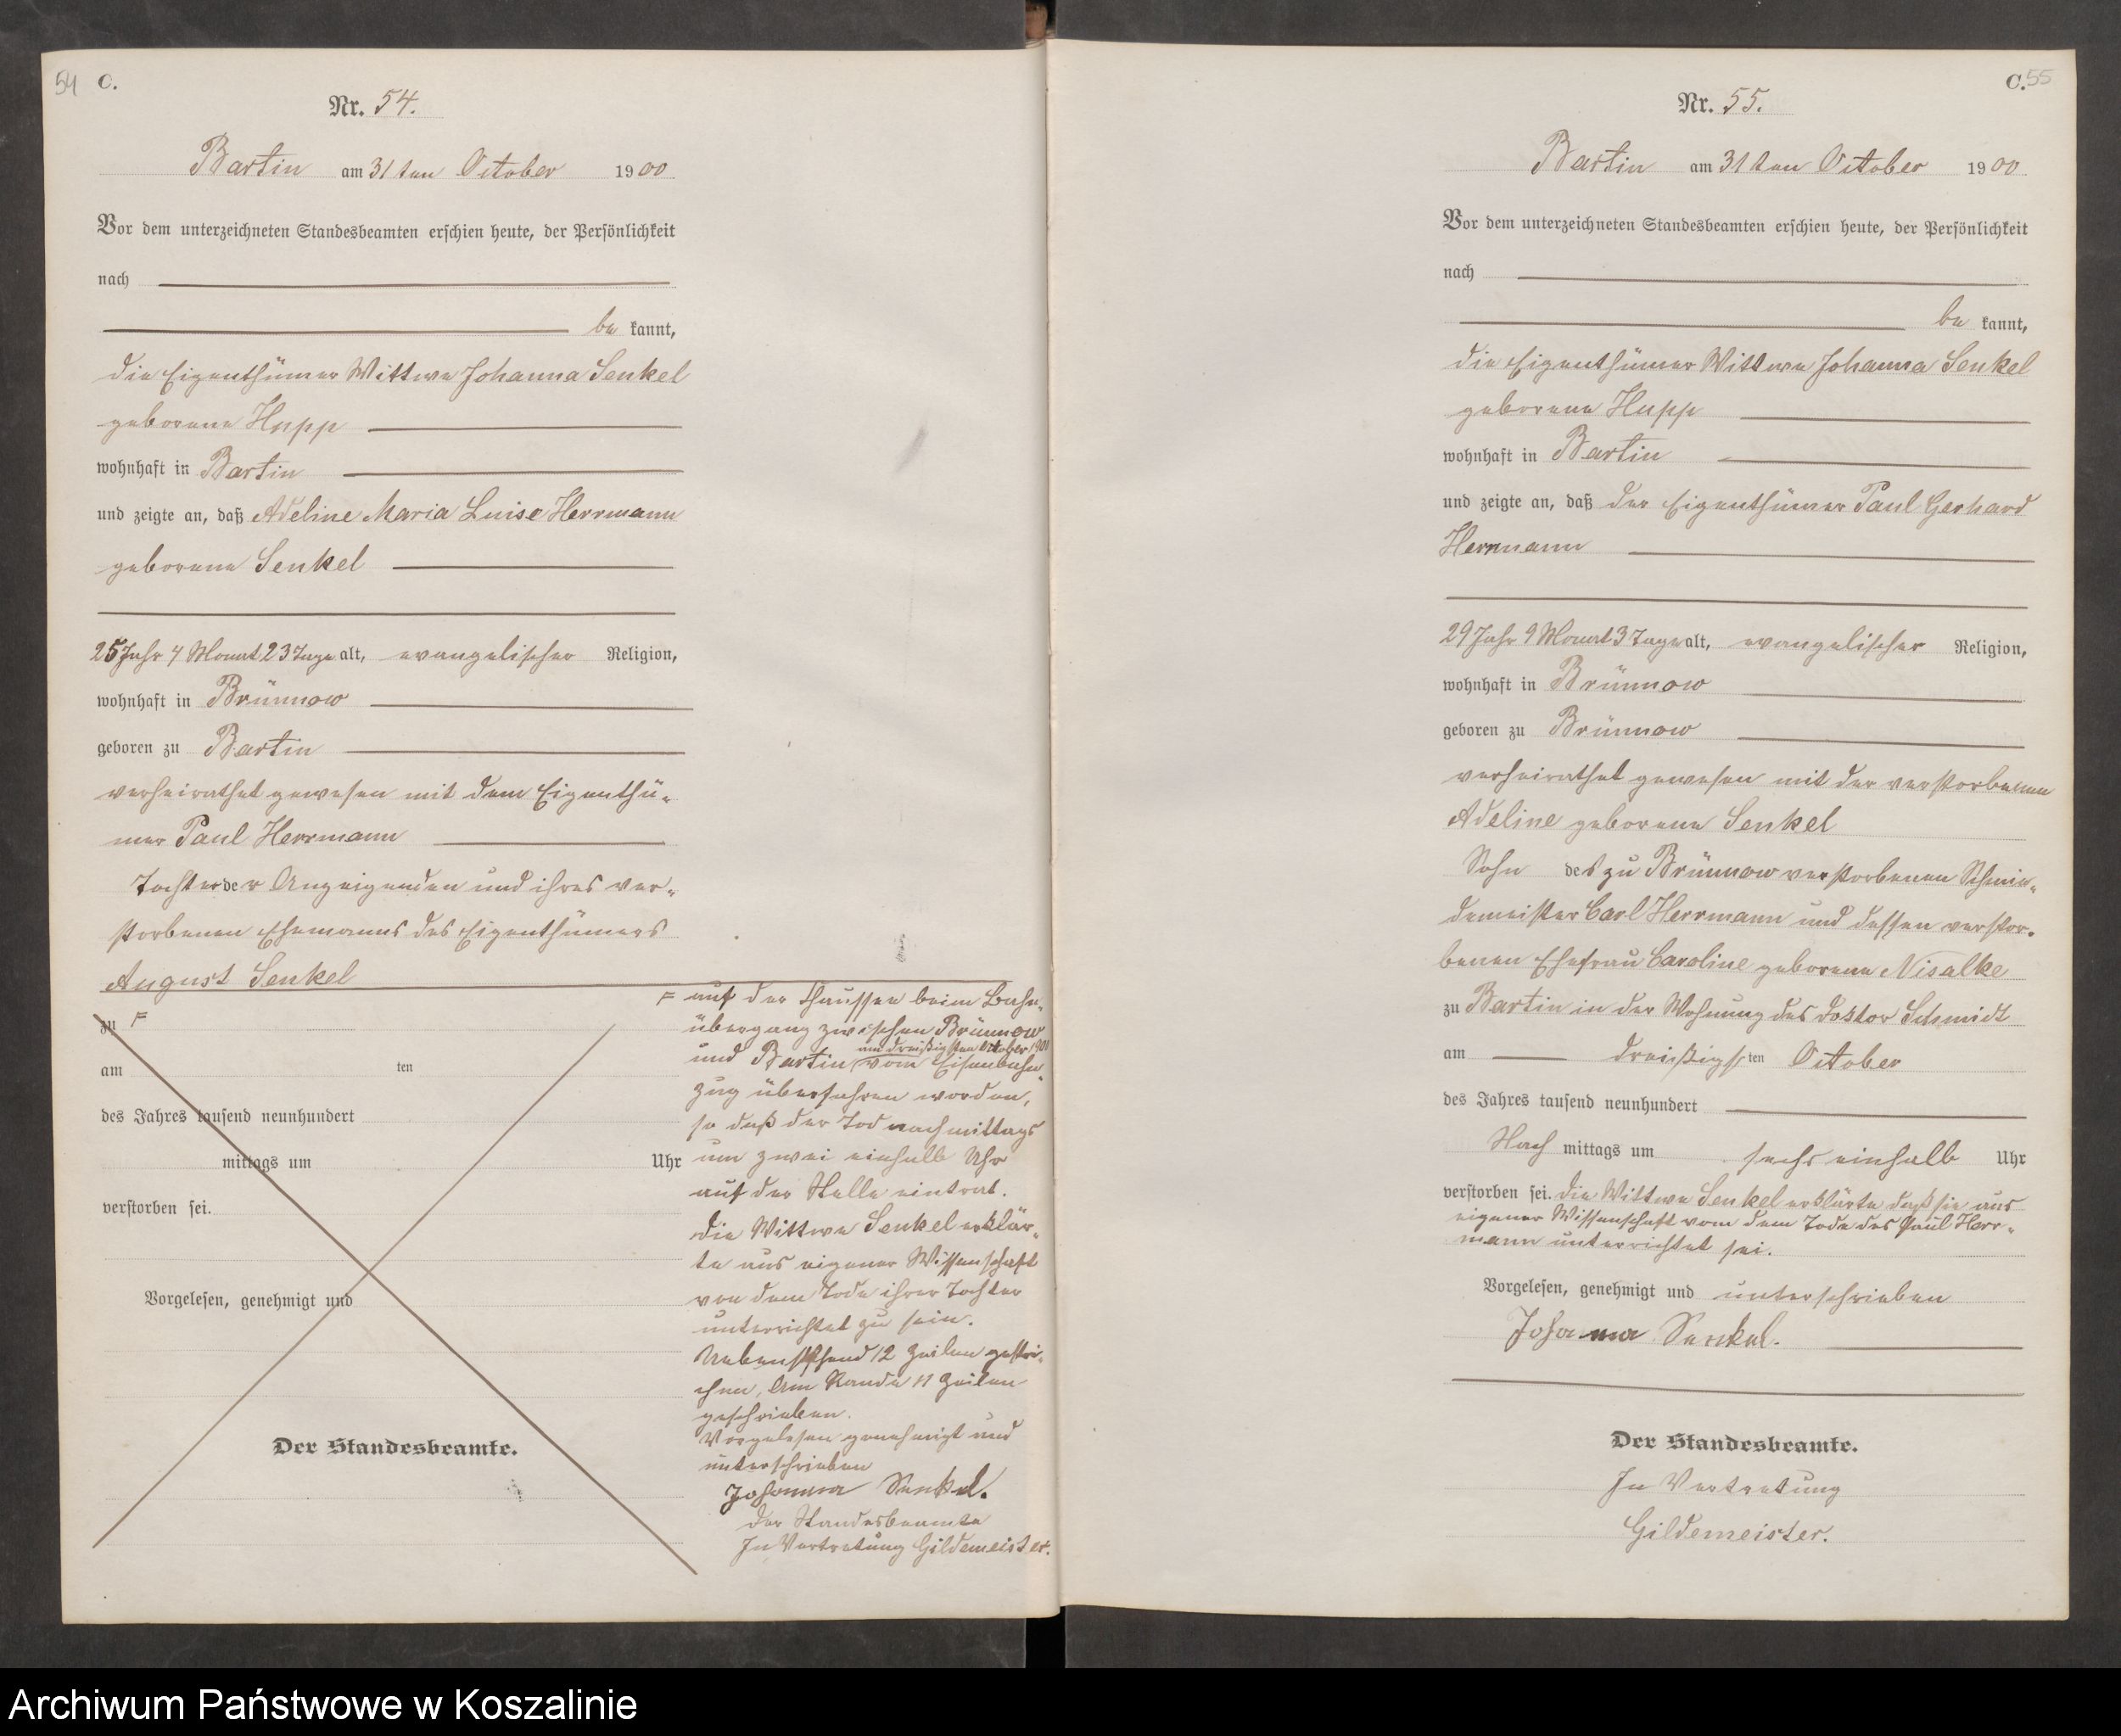 54 C.
Nr. 54.
Bartin am 31ten October 1900
Vor dem unterzeichneten Standesbeamten erschien heute, der Persönlichkeit
nach
bekannt,
die Eigenthümer Wittwe Johanna Senkel
geborene Hupp
wohnhaft in Bartin
und zeigte an, daß Adeline Maria Luise Herrmann
geborene Senkel
25 Jahr 4 Monat 23 Tage alt, evangelischer Religion,
wohnhaft in Brünnow
geboren zu Bartin
verheirathet gewesen mit dem Eigenthü-
mer Paul Herrmann
Tochter der Anzeigenden und ihres ver-
storbenen Ehemanns des Eigenthümers
August Senkel
zu F
am ten
des Jahres tausend neunhundert
mittags um Uhr
verstorben sei.
Vorgelesen, genehmigt und
Der Standesbeamte.
F auf der Chaussee beim Bahn-
übergang zwischen Brünnow
am dreißigsten October 1900
und Bartin vom Eisenbahn-
zug überfahren worden,
so daß der Tod nachmittags
um zwei einhalb Uhr
auf der Stelle eintrat.
Die Wittwe Senkel erklär-
te aus eigener Wissenschaft
von dem Tode ihrer Tochter
unterrichtet zu sein.
Nebenstehend 12 Zeilen gestri-
chen, Am Rande 11 Zeilen
geschrieben.
Vorgelesen genehmigt und
unterschrieben
Johanna Senkel.
Der Standesbeamte
In Vertretung Gildemeister.
C. 55
Nr. 55.
Bartin am 31ten October 1900
Vor dem unterzeichneten Standesbeamten erschien heute, der Persönlichkeit
nach
bekannt,
die Eigenthümer Wittwe Johanna Senkel
geborene Hupp
wohnhaft in Bartin
und zeigte an, daß der Eigenthümer Paul Gerhard
Herrmann
29 Jahr 9 Monat 3 Tage alt, evangelischer Religion,
wohnhaft in Brünnow
geboren zu Brünnow
verheirathet gewesen mit der verstorbenen
Adeline geborene Senkel
Sohn des zu Brünnow verstorbenen Schmie-
demeister Carl Herrmann und dessen verstor-
benen Ehefrau Caroline geborene Nisalke
zu Bartin in der Wohnung des Doktor Schmidt
am dreißigsten October
des Jahres tausend neunhundert
Nachmittags um sechs einhalb Uhr
verstorben sei. Die Wittwe Senkel erklärte daß sie aus
eigener Wissenschaft vom dem Tode des Paul Herr-
mann unterrichtet sei.
Vorgelesen, genehmigt und unterschrieben
Johanna Senkel.
Der Standesbeamte.
In Vertretung
Gildemeister.
Archiwum Państwowe w Koszalinie